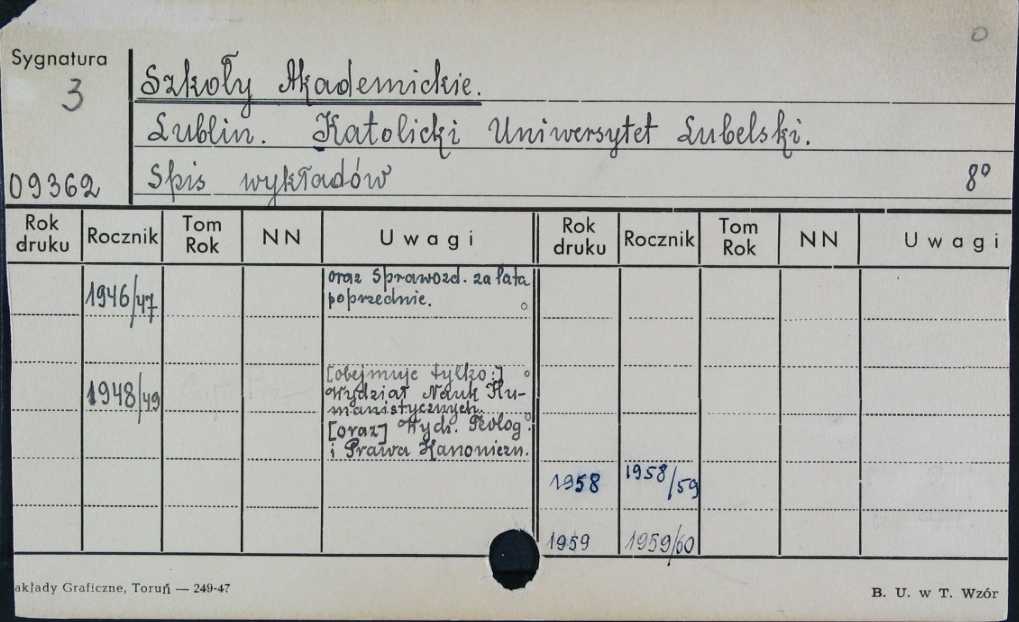 0
Sygnatura
3
09362
Szkoły Akademickie.
Lublin. Katolicki Uniwersytet Lubelski.
Spis wykładów 8°
Rok druku Rocznik Tom Rok NN Uwagi Rok druku Rocznik Tom Rok NN Uwagi
1946/47 oraz Sprawozd. za lata
poprzednie.
[obejmuje tylko:]
1948/49 Wydział Nauk Hu-
manistycznych.
[oraz] Wydz. Teolog.
i Prawa Kanoniczn.
1958 1958/59
1959 1959/60
akłady Graficzne, Toruń — 249-47 B. U. w T. Wzór